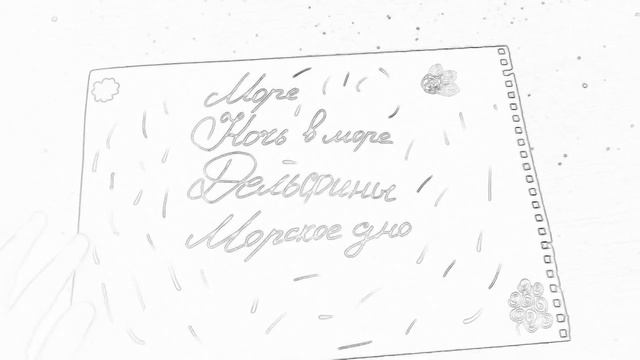 Море
Ночь в море
Дельфины
Морское дно